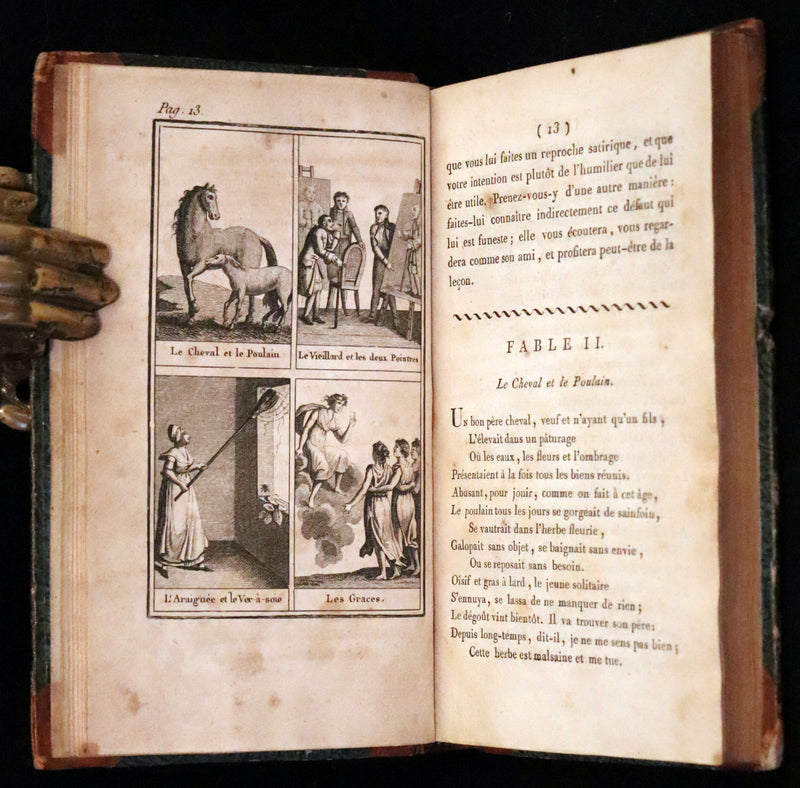 Pag. 13.
Le Cheval et le Poulain
Le Vieillard et les deux Peintres
L'Araignée et le Ver-à-soie
Les Graces.
( 13 )
que vous lui faites un reproche satirique, et que
votre intention est plutôt de l'humilier que de lui
être utile. Prenez-vous-y d'une autre manière :
faites-lui connaître indirectement ce défaut qui
lui est funeste ; elle vous écoutera, vous regar-
dera comme son ami, et profitera peut-être de la
leçon.
FABLE II.
Le Cheval et le Poulain.
UN bon père cheval, veuf et n'ayant qu'un fils,
L'élevait dans un pâturage
Où les eaux, les fleurs et l'ombrage
Présentaient à la fois tous les biens réunis.
Abusant, pour jouir, comme on fait à cet âge,
Le poulain tous les jours se gorgeait de sainfoin,
Se vautrait dans l'herbe fleurie,
Galopait sans objet, se baignait sans envie,
Ou se reposait sans besoin.
Oisif et gras à lard, le jeune solitaire
S'ennuya, se lassa de ne manquer de rien ;
Le dégoût vint bientôt. Il va trouver son père :
Depuis long-temps, dit-il, je ne me sens pas bien ;
Cette herbe est malsaine et me tue.